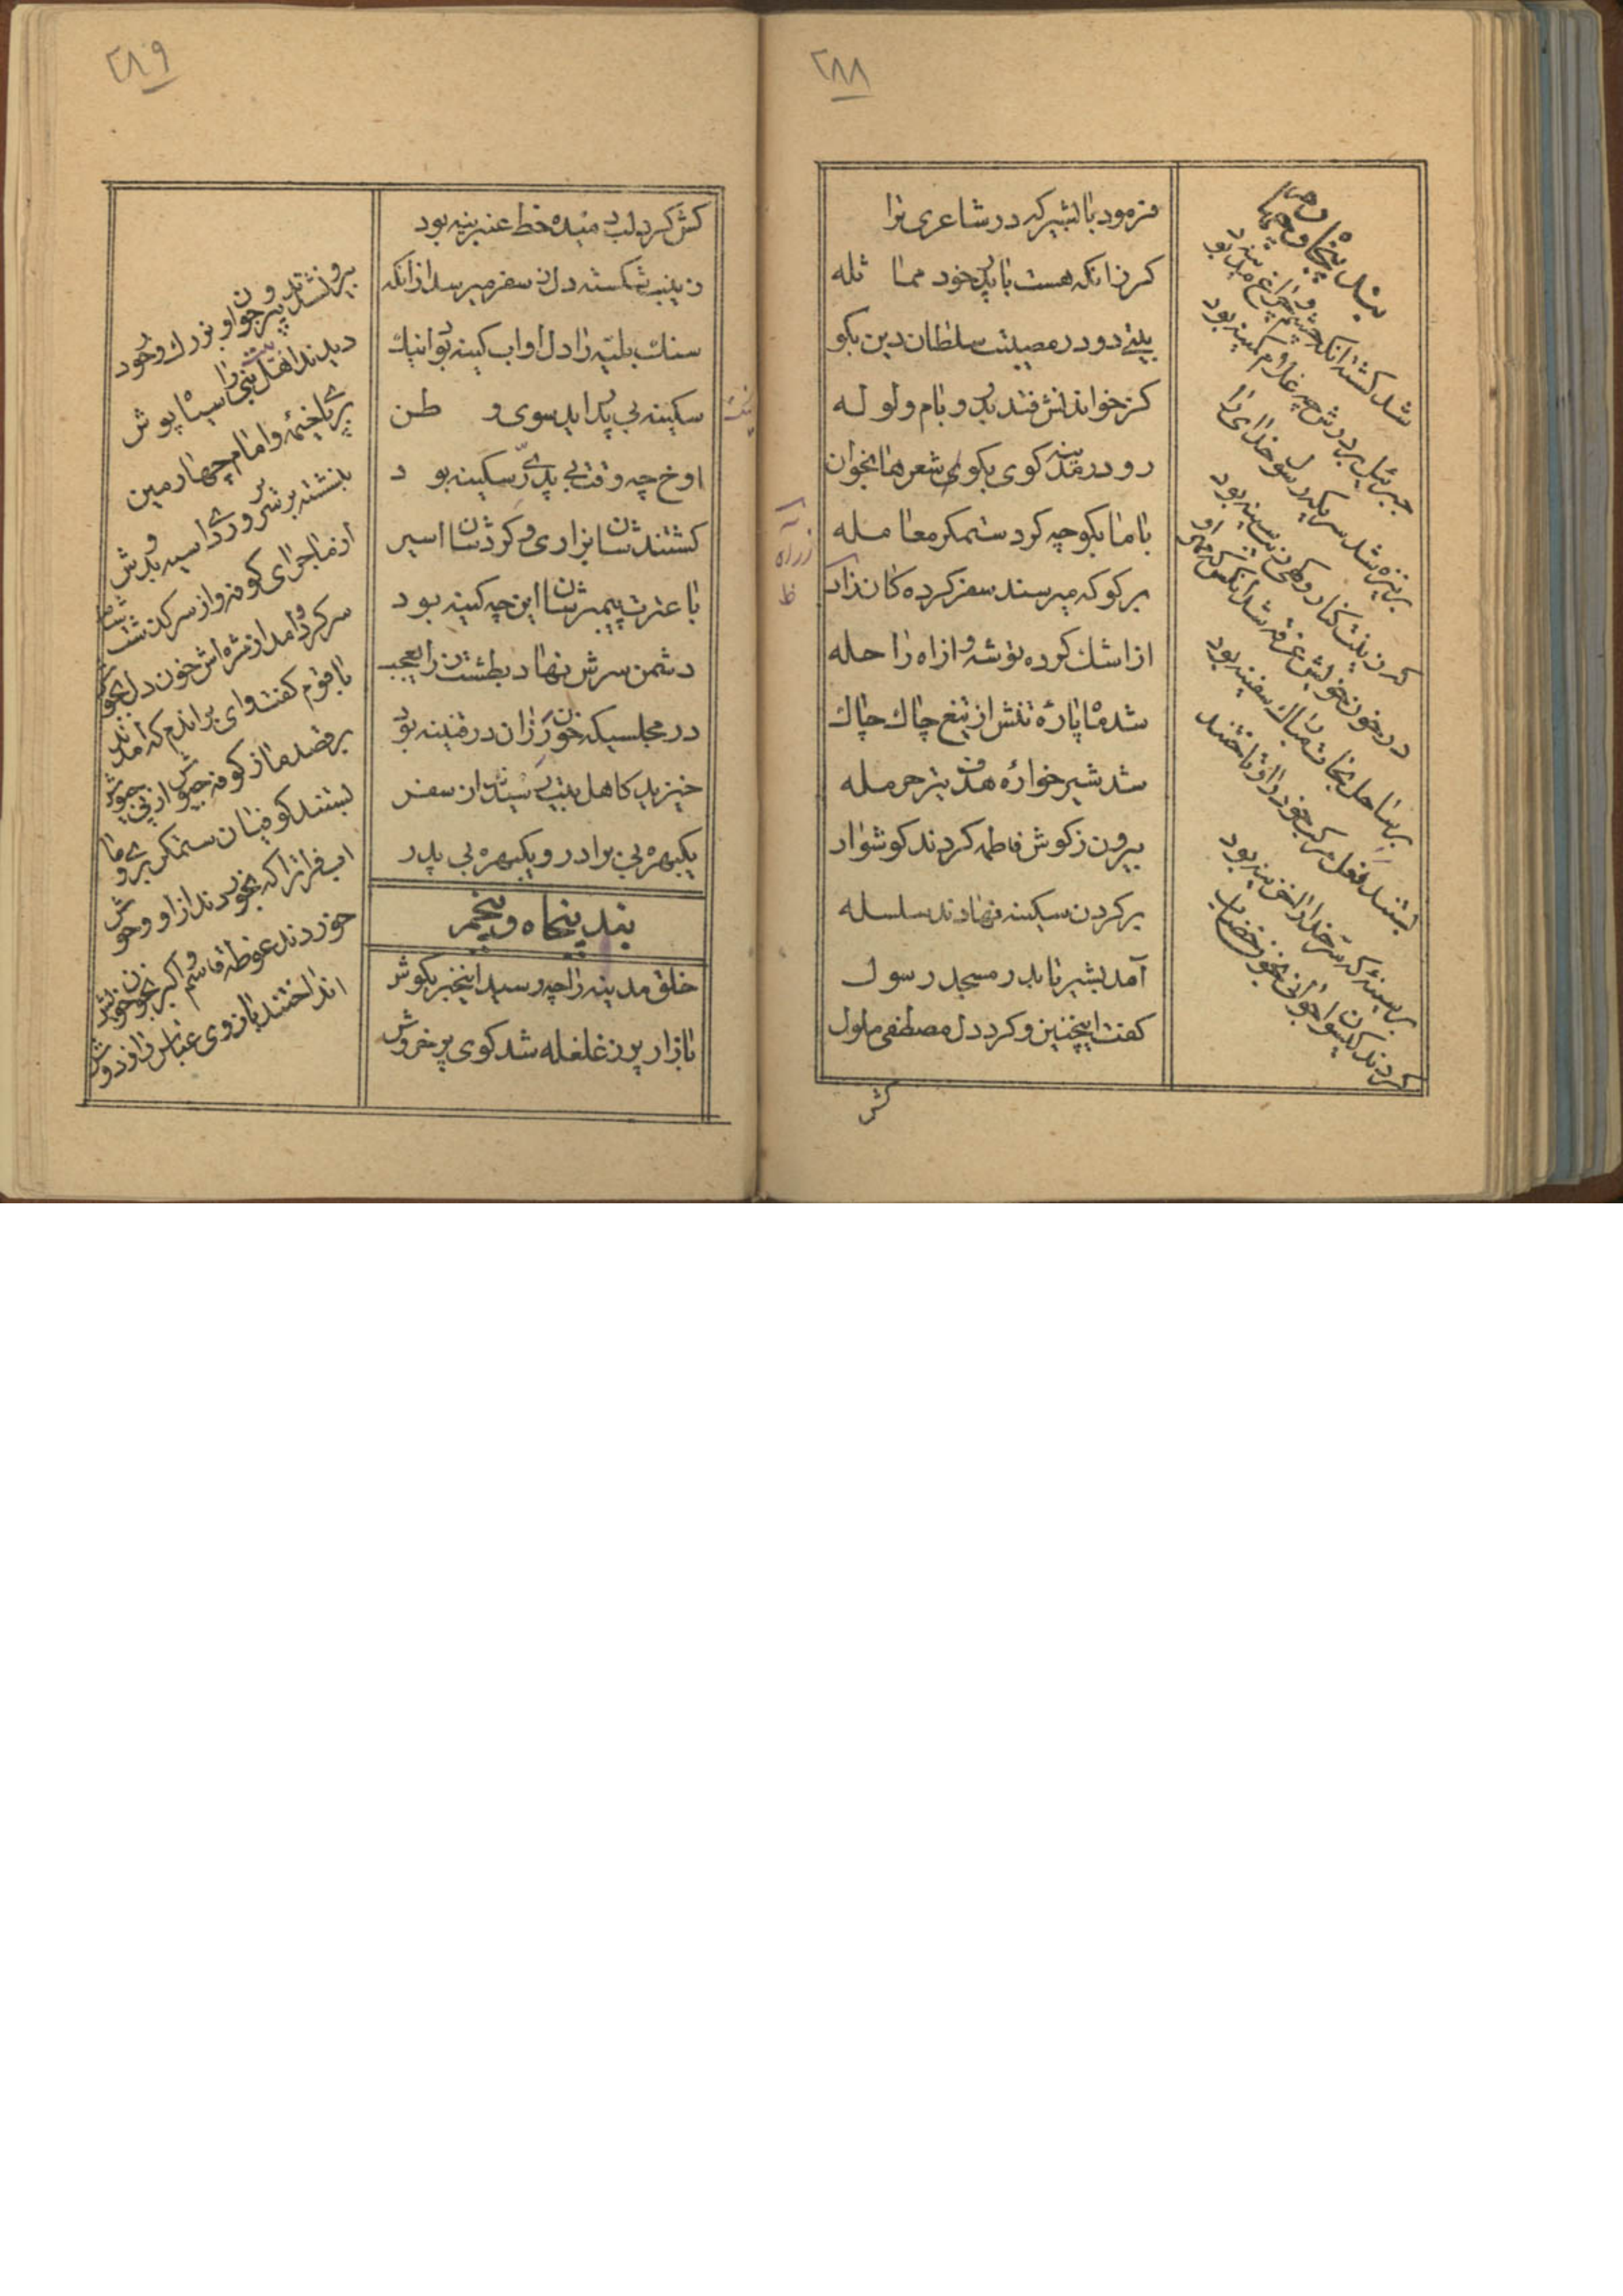 ۲۸۸
فرمود با بشیر که در شاعری ترا
کز زانکه هست با پدر خود مماثله
بیتی دو در مصیبت سلطان دین بگو
کز خواندنش فتد بدر و بام ولوله
رو در مدینه کوی بکوی شعرها بخوان
با ما بگو چه کرد ستمگر معامله
برگو که میرسند سفر کرده کان ز راه
از اشک کرده توشه و از اه راحله
شد ماپاره تنش از تیغ چاک چاک
شد شیرخواره هدف تیر حرمله
بیرون ز کوش فاطمه کردند کوشوار
بر کردن سکینه نهادند سلسله
آمد بشیر تا بدر مسجد رسول
کفت اینچنین و کرد دل مصطفی ملول
بند پنجاه و چهارم
شد کشته انکه چشم و چراغ مدینه بود
جبرئیل بر درش چه غلام کمینه بود
بر نیزه شد سر یکه رسول خدای را
در خون خویش غرقه شد انکس که مهر او
بر ساحل نجات ت سفینه بود
بستند نعل مرکب خود را و تاختند
بر سینه که سر خدا را خزینه بود
کردند کیسوا جوانی بخون خضاب
کش
۲۸۹
کش کرد لب دمیده خط عنبرینه بود
زینب شکسته دل ز سفر میرسد از انکه
سنک بلیه را دل او ابکینه بود اینک
سکینه بی پدر اید سوی وطن
اوخ چه وقت بی پدری سکینه بود
کشتندشان بزاری و کردشان اسیر
با عترت پیمبرشان این چه کینه بود
دشمن سرش نهاد بطشت زر ایعجب
در مجلسیکه خون رزان در قنینه بود
خیزید کاهل بیت رسیدند از سفر
یکبهره بی برادر و یکبهره بی پدر
بند پنجاه و پنجم
خلق مدینه را چه رسید اینخبر بکوش
بازار پر ز غلغله شد کوی پر خروش
بیرون شدند پیر و جوان و بزرک و خرد
دیدند اهل بیت نبی را سیاپوش
بر پا خیمه و امام چهارمین
بنشسته بر
از ماجرای کوفه و از سرکذشت شام
سر کرد و امد از مژه اش خون دل بجوش
با قوم کفت وای بر اندم که امدند
بر قصد ما ز کوفه جیوش از پی جیوش
بستند کوفیان ستمکر بروی ما
اب فراترا که بخوردند از او وحوش
خوردند غوطه قاسم و اکبر بخون خویش
انداختند بازوی عباس را ز دوش